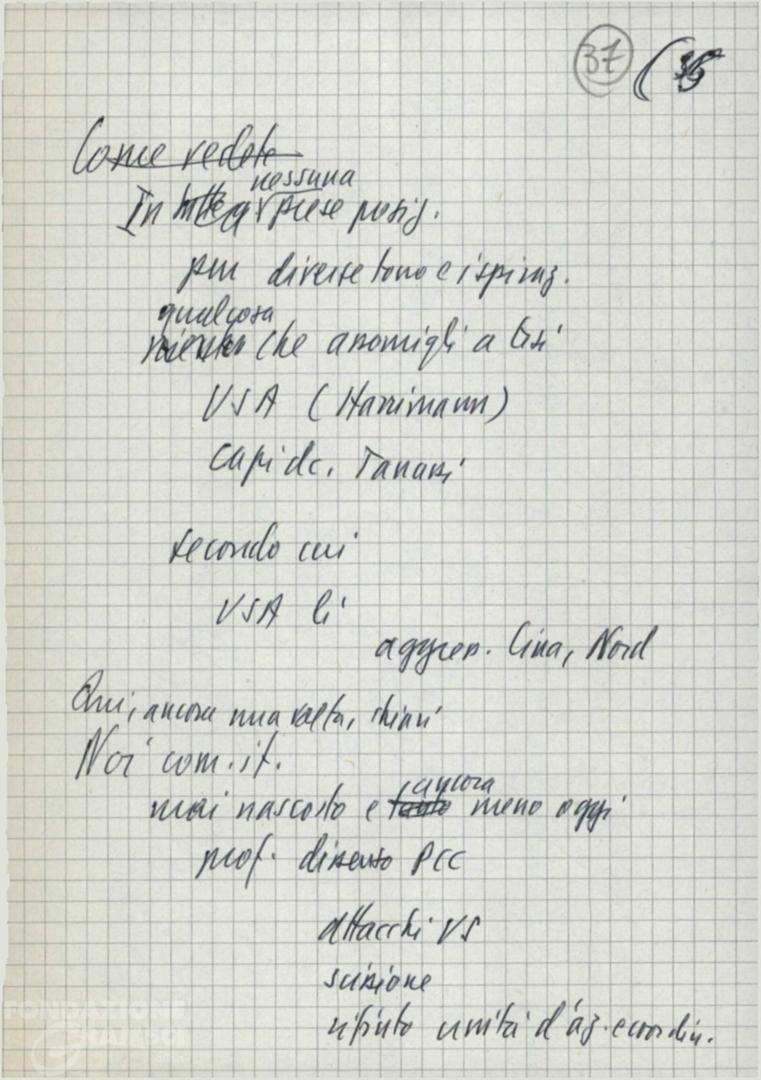 37 (36
Come vedete
nessuna
In queste prese posiz.
pur diverse tono e ispiraz.
qualcosa
che assomigli a tesi
USA (Harrimann)
capi dc. Tanassi
secondo cui
USA li
aggress. Cina, Nord
Qui, ancora una volta, chiari
Noi com. it.
ancora
mai nascosto e tanto meno oggi
prof. dissenso PCC
attacchi US
scissione
rifiuto unità d'az. e coordin.
FONDAZIONE
GRAMSCI